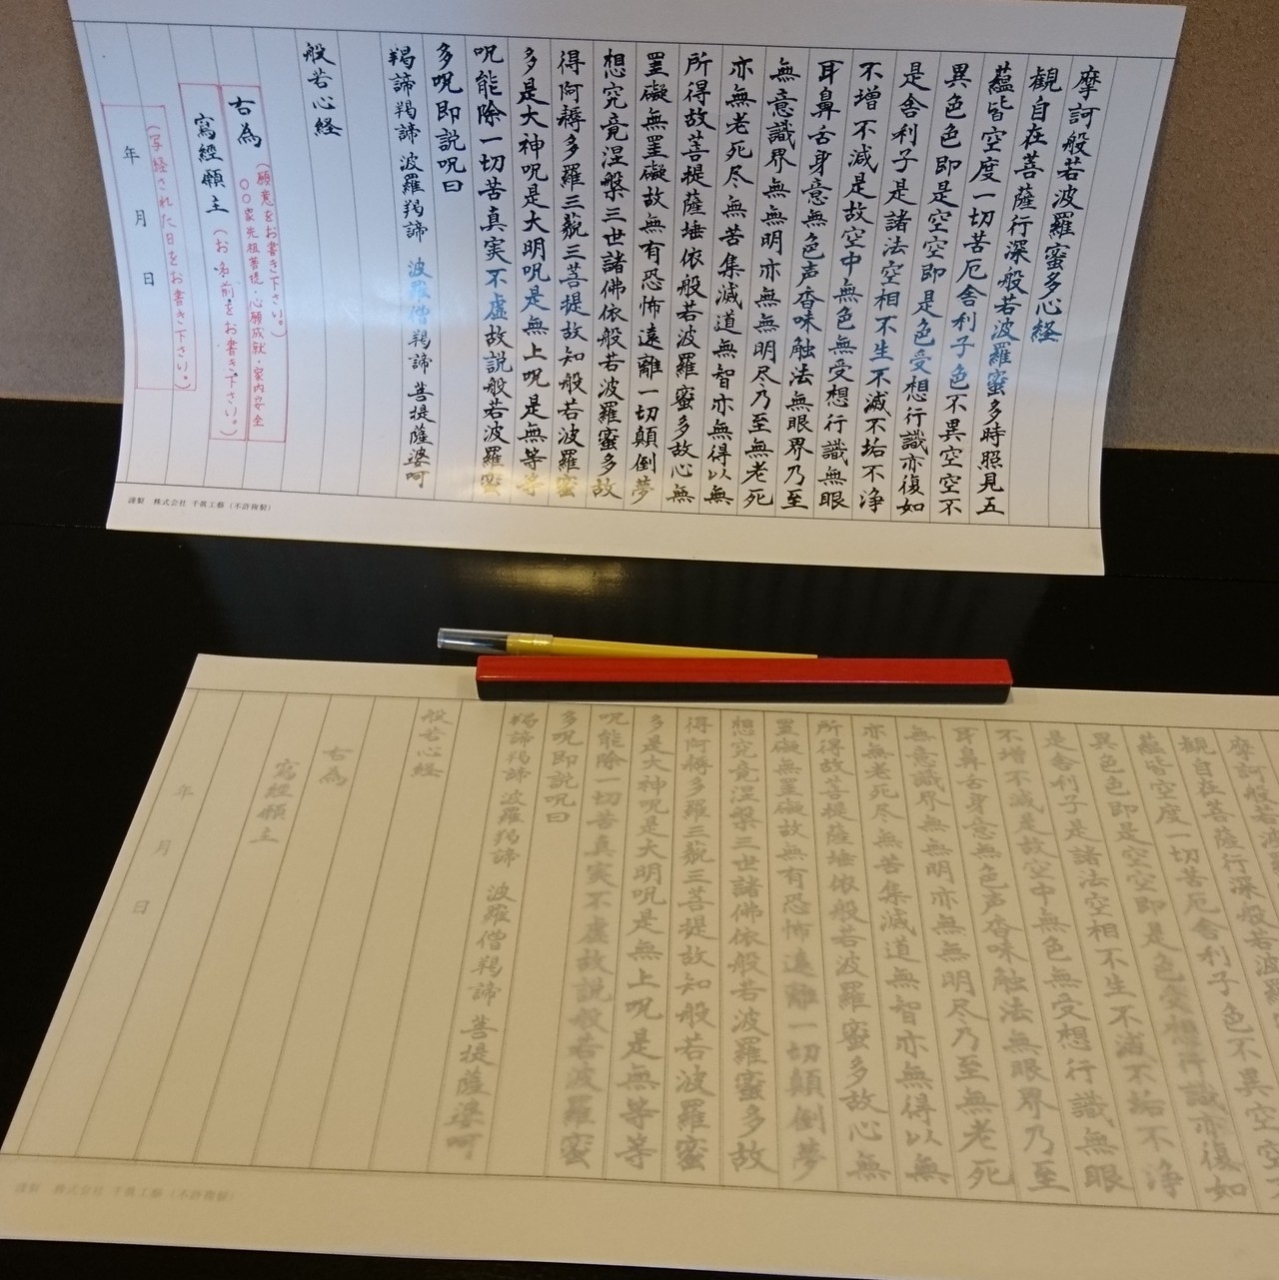 摩訶般若波羅蜜多心経
観自在菩薩行深般若波羅蜜多時照見五
蘊皆空度一切苦厄舎利子色不異空空不
異色色即是空空即是色受想行識亦復如
是舎利子是諸法空相不生不滅不垢不浄
不増不減是故空中無色無受想行識無眼
耳鼻舌身意無色声香味触法無眼界乃至
無意識界無無明亦無無明尽乃至無老死
亦無老死尽無苦集滅道無智亦無得以無
所得故菩提薩埵依般若波羅蜜多故心無
罣礙無罣礙故無有恐怖遠離一切顛倒夢
想究竟涅槃三世諸佛依般若波羅蜜多故
得阿耨多羅三藐三菩提故知般若波羅蜜
多是大神呪是大明呪是無上呪是無等等
呪能除一切苦真実不虚故説般若波羅蜜
多呪即説呪曰
羯諦羯諦 波羅羯諦 波羅僧羯諦 菩提薩婆呵
般若心経
右為(願意をお書き下さい。)
〇〇家先祖菩提・心願成就・家内安全
寫經願主(お名前をお書き下さい。)
年 月 日
(写経された日をお書き下さい。)
謹製 株式会社 (不許複製)
摩訶般若波
観自在菩薩行深般若波
蘊皆空度一切苦厄舎利子色不異空
異色色即是空空即是色受想行識亦復如
是舎利子是諸法空相不生不滅不垢不浄
不増不減是故空中無色無受想行識無眼
耳鼻舌身意無色声香味触法無眼界乃至
無意識界無無明亦無無明尽乃至無老死
亦無老死尽無苦集滅道無智亦無得以無
所得故菩提薩埵依般若波羅蜜多故心無
罣礙無罣礙故無有恐怖遠離一切顛倒夢
想究竟涅槃三世諸佛依般若波羅蜜多故
得阿耨多羅三藐三菩提故知般若波羅蜜
多是大神呪是大明呪是無上呪是無等等
呪能除一切苦真実不虚故説般若波羅蜜
多呪即説呪曰
羯諦羯諦 波羅羯諦 波羅僧羯諦 菩提薩婆呵
般若心経
右為
寫經願主
年 月 日
謹製 株式会社 (不許複製)